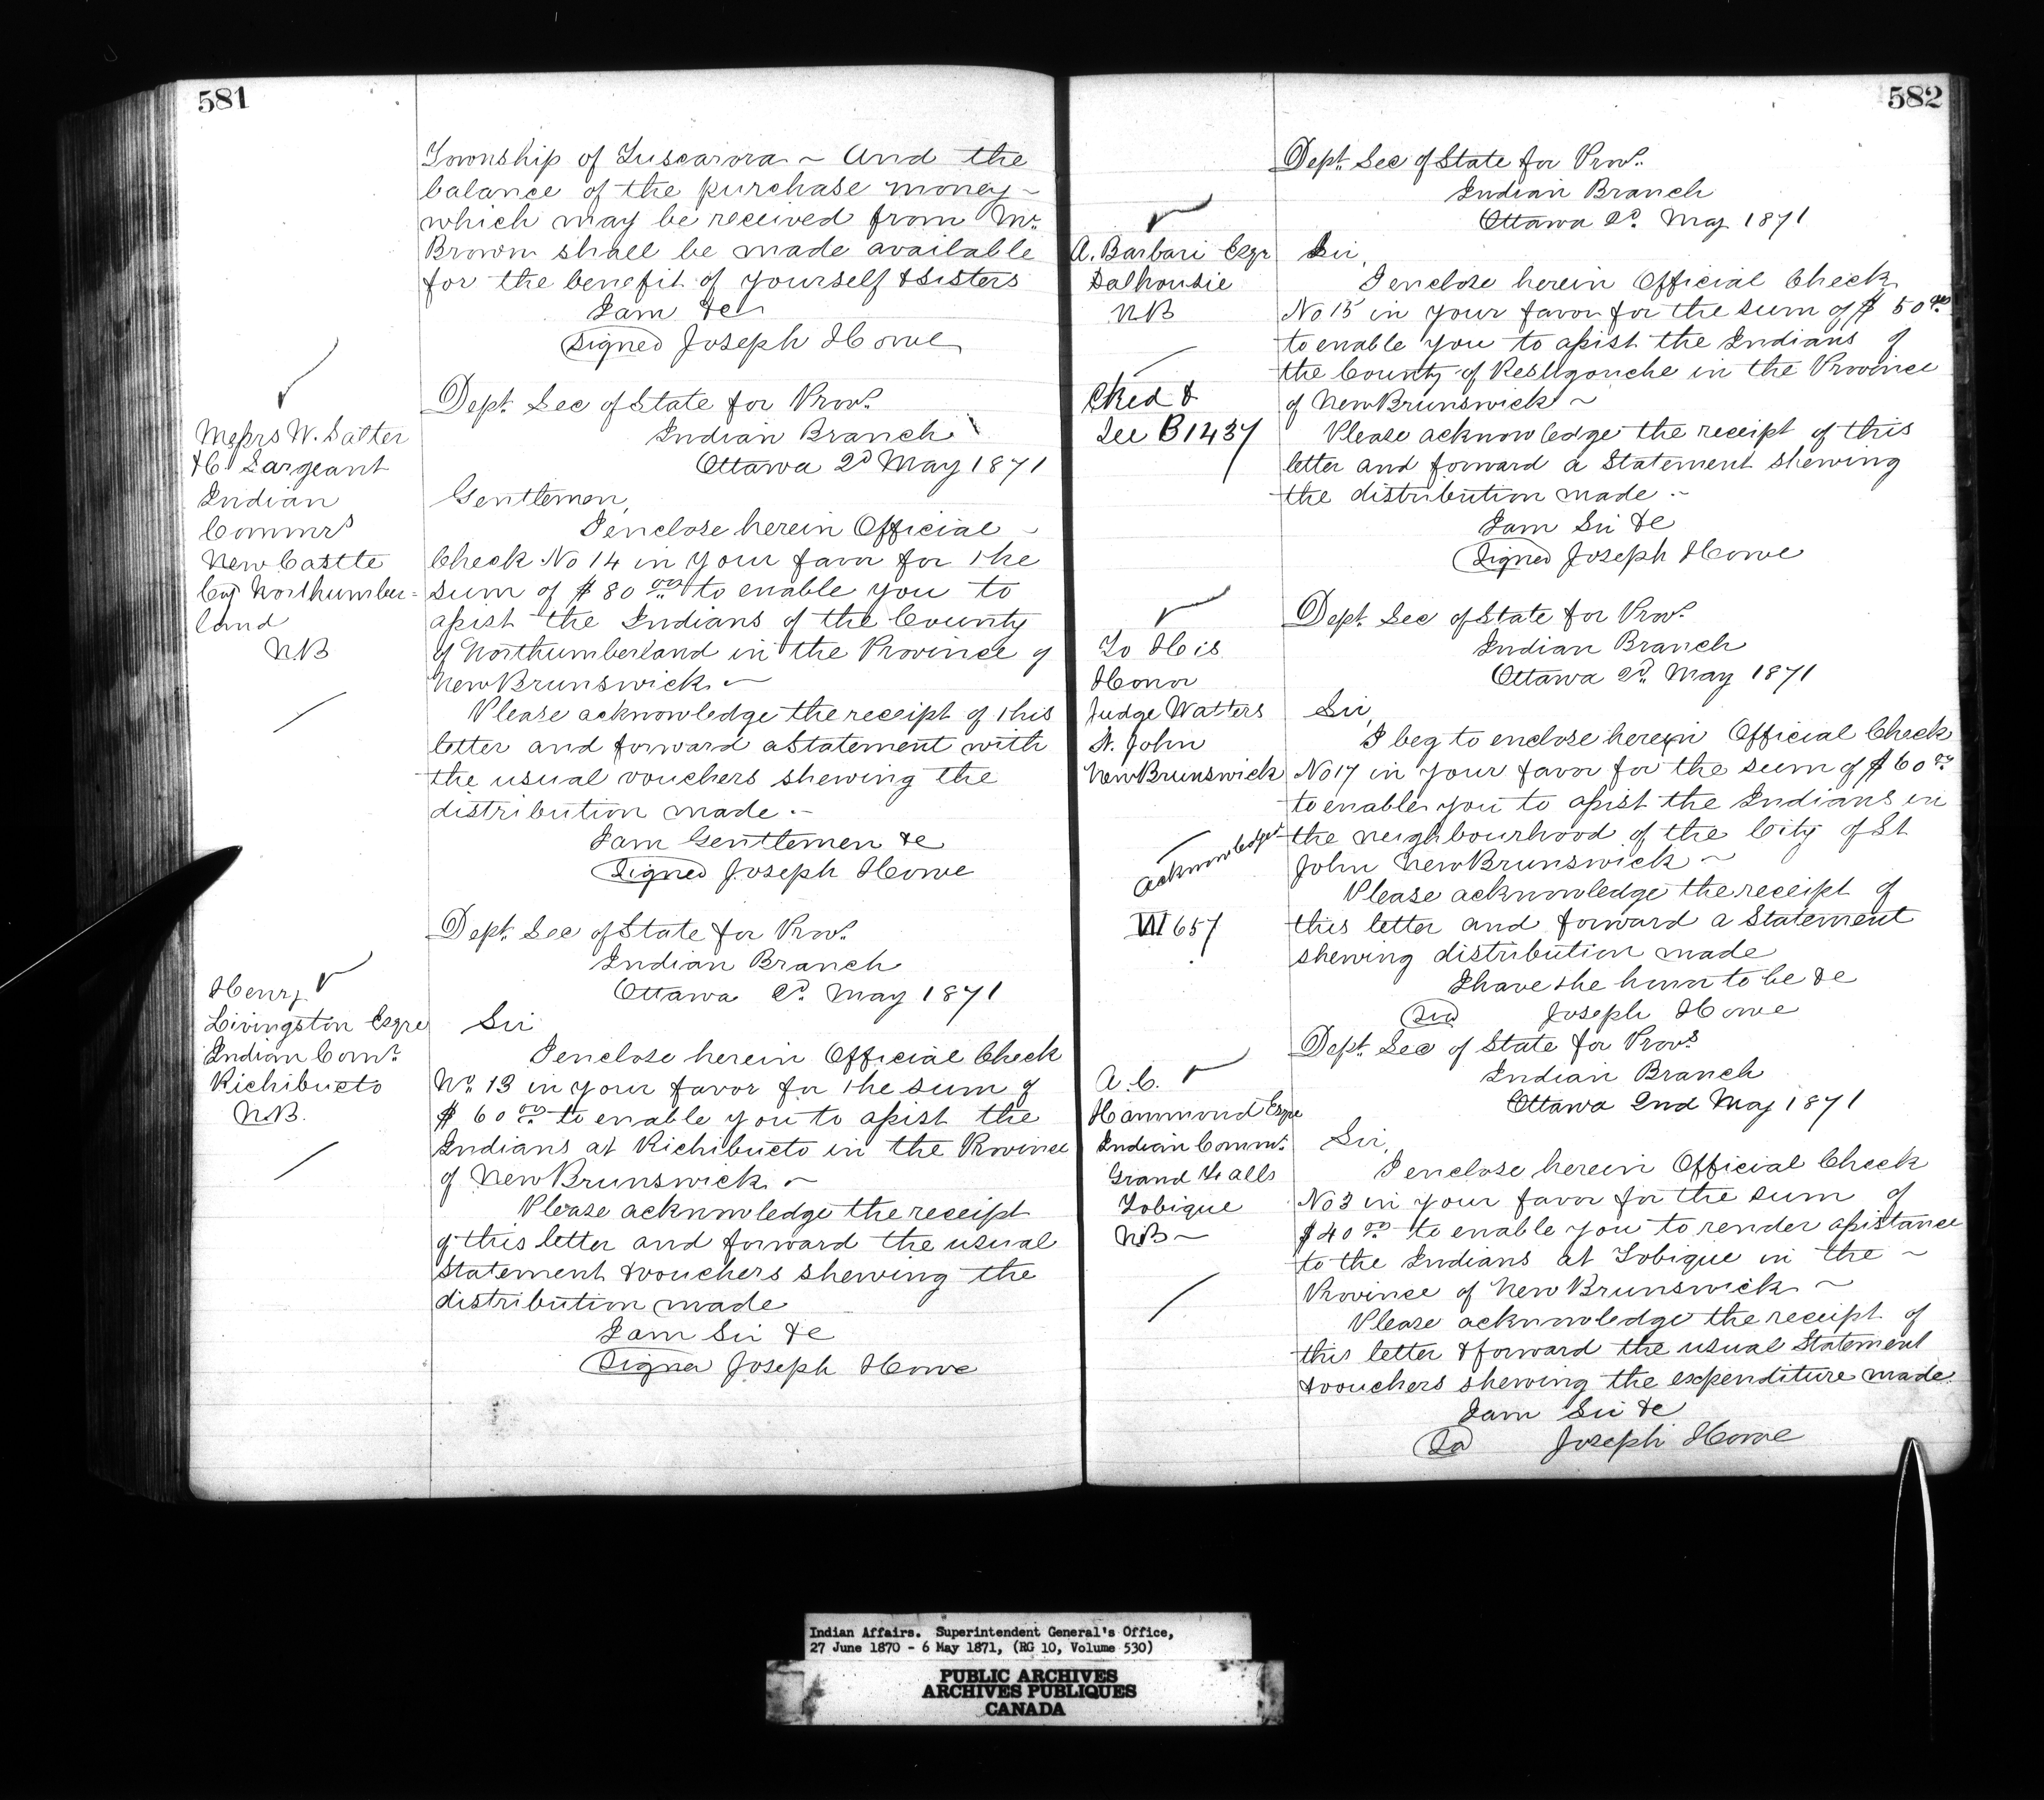 581
Township of Tuscarora ~ And the
balance of the purchase money ~
which may be received from Mr.
Brown shall be made available
for the benefit of yourself & sisters
I am &c
Signed Joseph Howe
Messrs W. Salter
& C. Sargeant
Indian
Commrs
New Castle
Coy Northumber=
land
N.B
Dept. Sec of State for Provs.
Indian Branch
Ottawa 2d May 1871
Gentlemen,
I enclose herein Official ~
Check No 14 in your favor for the
sum of $80 00 to enable you to
assist the Indians of the County
of Northumberland in the Province of
New Brunswick. ~
Please acknowledge the receipt of this
letter and forward a Statement with
the usual vouchers shewing the
distribution made. ~
I am Gentlemen &c
Signed Joseph Howe
Henry
Livingston Esqre
Indian Comr.
Richibucto
N.B.
Dept. Sec of State for Provs.
Indian Branch
Ottawa 2d. May 1871
Sir
I enclose herein Official Check
No. 13 in your favor for the sum of
$60 00 to enable you to assist the
Indians at Richibucto in the Province
of New Brunswick. ~
Please acknowledge the receipt
of this letter and forward the usual
Statement & vouchers shewing the
distribution made
I am Sir &c
Signed Joseph Howe
582
A. Barbari Esqr
Dalhousie
NB
Cked &
See B1437
Dept. Sec of State for Provs.
Indian Branch
Ottawa 2d. May 1871
Sir,
I enclose herein Official Check
No 15 in your favor for the sum of $50 00
to enable you to assist the Indians of
the County of Restigouche in the Province
of New Brunswick ~
Please acknowledge the receipt of this
letter and forward a Statement shewing
the distribution made. ~
I am Sir &c
Signed Joseph Howe
To His
Honor
Judge Watters
St. John
New Brunswick
Acknowledged
W657
Dept. Sec of State for Provs.
Indian Branch
Ottawa 2d. May 1871
Sir,
I beg to enclose herein Official Check
No 17 in your favor for the sum of $60 00
to enable you to assist the Indians in
the neighbourhood of the City of St
John New Brunswick ~
Please acknowledge the receipt of
this letter and forward a Statement
shewing distribution made
I have the honor to be &c
Sd Joseph Howe
A. C.
Hammond Esqre
Indian Commr.
Grand Falls
Tobique
NB ~
Dept. Sec of State for Provs
Indian Branch
Ottawa 2nd May 1871
Sir,
I enclose herein Official Check
No 3 in your favor for the sum of
$40 00 to enable you to render assistance
to the Indians at Tobique in the ~
Province of New Brunswick ~
Please acknowledge the receipt of
this letter & forward the usual Statement
& vouchers shewing the expenditure made.
I am Sir &c
Sd Joseph Howe
Indian Affairs. Superintendent General's Office,
27 June 1870 - 6 May 1871, (RG 10, Volume 530)
PUBLIC ARCHIVES
ARCHIVES PUBLIQUES
CANADA